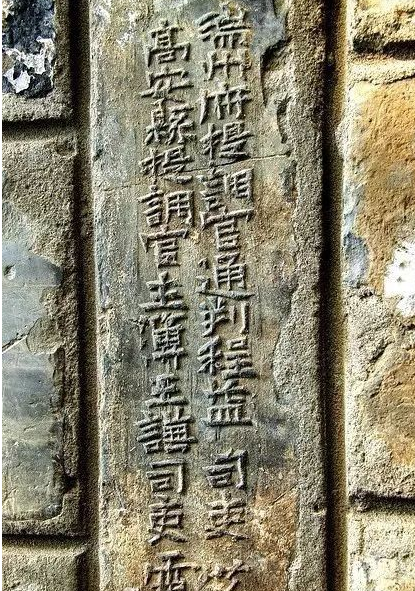 瑞州府提調官通判程益 司吏
高安縣提調官主簿王謙司吏